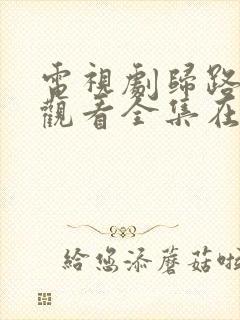 電視劇歸路
觀看全集在
給您添蘑菇啦